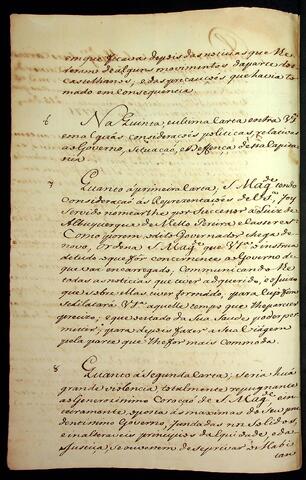 em que ficava depois das noticias que lhe
derão de alguns movimentos da parte dos
castelhanos, e das precauções que havia to
mado em consequencia.
6 Na Quinta, e ultima Carta entra VS.ª
em algũas considerações politicas, relativas
ao Governo, Situação, e Deffença dessa Capita
nia.
7 Quanto á primeira Carta, S. Mag.e tendo
consideração ás Representações de VS.ª, foy
Servido nomear-lhe por Successor a Luiz de
Albuquerque de Mello Pereira e Caseres.
Como porem este Governador chega de
novo, Ordena S. Mag.e que VS.ª o instrua
de tudo o que for concernente ao Governo de
que vai encarregado, Communicando-lhe
todas as noticias que tiver adquerido, e o juizo
que sobre ellas tiver formado; para cujo fim
se dilatará VS.ª aquelle tempo que julgar ser
precizo, e que o estado da sua Saude poder per
mitir; para depois fazer a sua Viágem
pela parte que lhe for mais commoda.
8 Quanto á Segunda Carta; seria húa
grande violencia, totalmente repugnante
ao Generozissimo Coração de S. Mag.e, in
teiramente oposta ás maximas do seu pru
dentissimo Governo, fundadas nos solidos,
e inalteraveis principios da Equidade, e da
Justiça, se ouvessem de se privar os Habi
tan